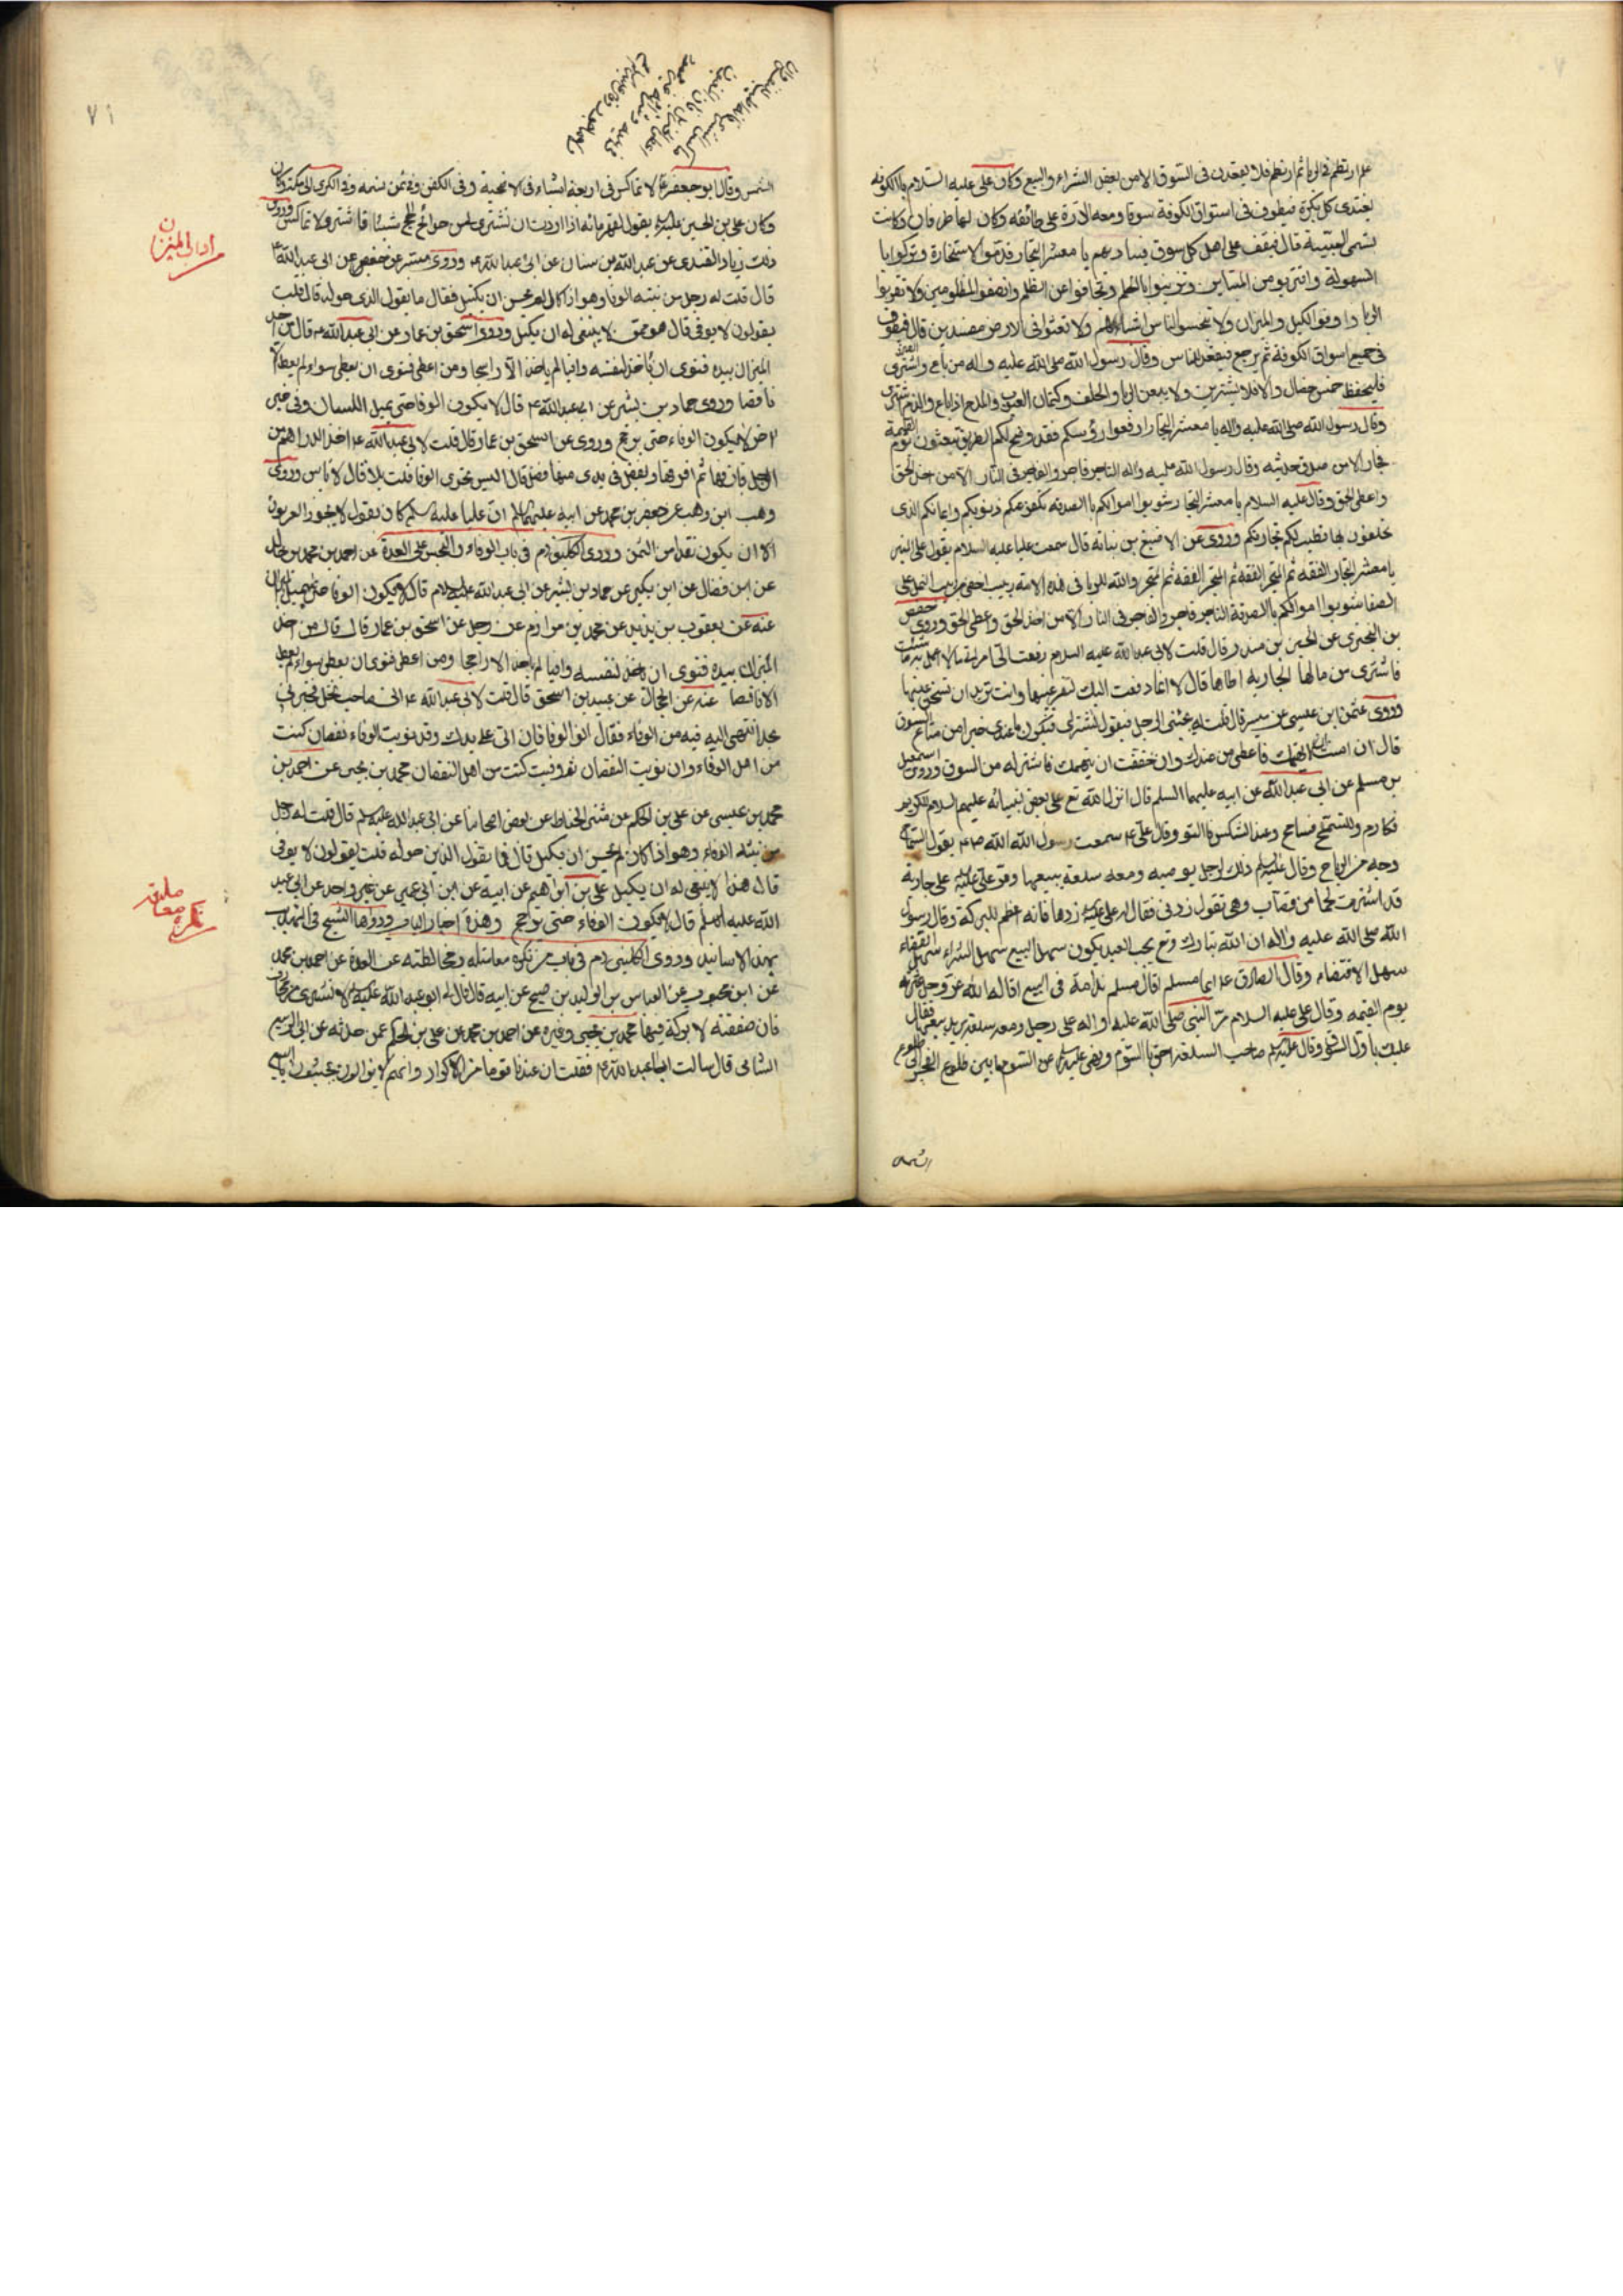 علم ارتطم فى الربا ثم ارتطم فلا يقعدن فى السوق الا من يعقل الشراء والبيع وكان على عليه السلام بالكوفه
يغتدى كل بكرة فيطوف فى اسواق الكوفة سوقا سوقا ومعه الدرة على عاتقه وكان لها طرفان وكانت
تسمى السبيبة قال فيقف على اهل كل سوق فيناديهم يا معشر التجار قدموا الاستخارة وتبركوا با
السهولة واقتربو من المبتاعين وتزينوا بالحلم وتجافوا عن الظلم وانصفوا المظلومين ولا تقربوا
الربا واوفوا الكيل والميزان ولا تبخسوا الناس اشياءهم ولا تعثوا فى الارض مفسدين قال فيطوف
فى جميع اسواق الكوفة ثم يرجع فيقعد للناس وقال رسول الله صلى الله عليه واله من باع واشترى
فليحفظ خمس خصال والا فلا يشترين ولا يبيعن الربا والحلف وكتمان العيوب والمدح اذا باع والذم اذا اشترى
وقال رسول الله صلى الله عليه واله يا معشر التجار ارفعوا رؤسكم فقد وضح لكم الطريق تبعثون يوم القيمة
فجارا الا من صدق حديثه وقال رسول الله عليه واله التاجر فاجر والفاجر فى النار الا من اخذ الحق
واعطى الحق وقال عليه السلام يا معشر التجار شوبوا اموالكم باالصدقه تكفر عنكم ذنوبكم وايمانكم الذى
تحلفون بها تطيب لكم تجارتكم وروى عن الاصبغ بن نباته قال سمعت عليا عليه السلام يقول على المنبر
يا معشر التجار الفقه ثم المتجر الفقه ثم المتجر الفقه ثم المتجر والله للربا فى هذه الامه دبيب اخفى من دبيب النمل على
الصفا شوبوا اموالكم باالصدقة التاجر فاجر والفاجر فى النار الا من اخذ الحق واعطى الحق وروى حفص
بن البخترى عن الحسين بن منذر قال قلت لابى عبد الله عليه السلام
فاشترى من مالها الجارية اطاها قال لا انما دفعت اليك لتقر عينها وانت تريد ان تسخن عينها
وروى عثمن ابن عيسى عن ميسر قال قلت له يجيئنى الرجل فيقول تشترى لى فيكون ما عندى خيرا من متاع السوق
قال ان امنت ان لا يتهمك فاعطه من عندك وان خفت ان يتهمك فاشتر له من السوق وروى اسمعيل
بن مسلم عن ابى عبد الله عن ابيه عليهما السلم قال انزل الله تع على بعض انبيائه عليهم السلام للكريم
فكارم وللسمح فسامح وعند الشكس فالتو وقال على ع سمعت رسول الله ص يقول السماح
وجه من الرباح وقال عليه السلم ذلك لرجل يوصيه ومعه سلعة يبيعها ومر على عليه السلم على جارية
قد اشترت لحما من قصاب وهى تقول زدنى فقال له على عليه السلم زدها فانه اعظم للبركة وقال رسول
الله صلى الله عليه واله ان الله تبارك وتع يحب العبد يكون سهل البيع سهل الشراء سهل القضاء
سهل الاقتضاء وقال الصادق ع ايما مسلم اقال مسلم ندامة فى البيع اقاله الله عز وجل عثرته
يوم القيمه وقال على عليه السلام مر النبى صلى الله عليه واله على رجل ومعه سلعة يريد بيعها فقال
عليك باول السوق وقال عليه السلم صاحب السلعة احق باالسوم ونهى عليه السلم عن السوم ما بين طلوع الفجر الى طلوع
الشمس
٧١
الشمس وقال ابو جعفر ع لا تماكس فى اربعة اشياء فى الاضحية وفى الكفن وفى ثمن نسمه وفى الكرى الى مكة وكان
وكان على بن الحسين عليه السلم يقول لقهرمانه اذا اردت ان تشترى لى من حوائج الحج شيئا فاشتر ولا تماكس وروى
ذلك زياد القندى عن عبد الله بن سنان عن ابى عبد الله ع وروى ميسر عن حفص عن ابى عبد الله ع
قال قلت له رجل من نيته الوفا وهو اذا كال لم يحسن ان يكيل فقال ما يقول الذى حوله قال قلت
يقولون لا يوفى قال هو ممن لا ينبغى له ان يكيل وروى اسحق بن عمار عن ابى عبد الله ع قال من اخذ
الميزان بيده فنوى ان ياخذ لنفسه وافيا لم ياخذ الا راجحا ومن اعطى فنوى ان يعطى سواء لم يعط الا
ناقصا وروى حماد بن بشير عن ابى عبد الله ع قال لا يكون الوفا حتى يميل اللسان وفى خبر
اخر لا يكون الوفاء حتى يرجح وروى عن اسحق بن عمار قال قلت لابى عبد الله ع اخذ الدراهم من
الرجل فازنها ثم افرقها ويفضل فى يدى منها فضل قال اليس تحرى الوفا قلت بلا قال لا باس وروى
وهب ابن وهب عن جعفر بن محمد عن ابيه عليهما السلم ان عليا عليه السلم كان يقول لا يجوز العربون
الا ان يكون نقدا من الثمن وروى الكلينى ره فى باب الوفاء والبخس على العدة عن احمد بن محمد بن خالد
عن ابن فضال عن ابن بكير عن حماد بن بشير عن ابى عبد الله عليه السلام قال لا يكون الوفا حتى يميل الميزان
عنه عن يعقوب بن يزيد عن محمد بن مرازم عن رجل عن اسحق بن عمار قال قال من اخذ
الميزان بيده فنوى ان ياخذ لنفسه وافيا لم ياخذ الا راجحا ومن اعطى فنوى ان يعطى سواء لم يعط
الا ناقصا عنه عن الحجال عن عبيد بن اسحق قال قلت لابى عبد الله ع انى صاحب نخل فخبرنى
بحد انتهى اليه فيه من الوفاء فقال انو الوفا فان اتى على يدك وقد نويت الوفاء نقصان كنت
من اهل الوفاء وان نويت النقصان ثم اوفيت كنت من اهل النقصان محمد بن يحيى عن احمد بن
محمد بن عيسى عن على بن الحكم عن مثنى الحناط عن بعض اصحابنا عن ابى عبد الله عليه السلم قال قلت له رجل
من نيته الوفاء وهو اذا كال لم يحسن ان يكيل قال فما يقول الذين حوله قلت يقولون لا يوفى
قال هذا لا ينبغى له ان يكيل على بن ابراهيم عن ابيه عن ابن ابى عمير عن غير واحد عن ابى عبد
الله عليه السلم قال لا يكون الوفاء حتى يرجح وهذه اخبار الباب ورواها الشيخ فى التهذيب
بهذا الاسانيد وروى الكلينى ره فى باب من تكره معاملته ومخالطته عن العدة عن احمد بن محمد
عن ابن محبوب عن العباس بن الوليد بن صبيح عن ابيه قال قال لى ابو عبد الله عليه السلم لا تشترى من محارف
فان صفقته لا بركة فيها محمد بن يحيى وغيره عن احمد بن محمد عن على بن الحكم عمن حدثه عن ابى الربيع
الشامى قال سالت ابا عبد الله ع فقلت ان عندنا قوما من الاكراد وانهم لا يزالون يجيئون
اداب الميزان
من تكره معاملته